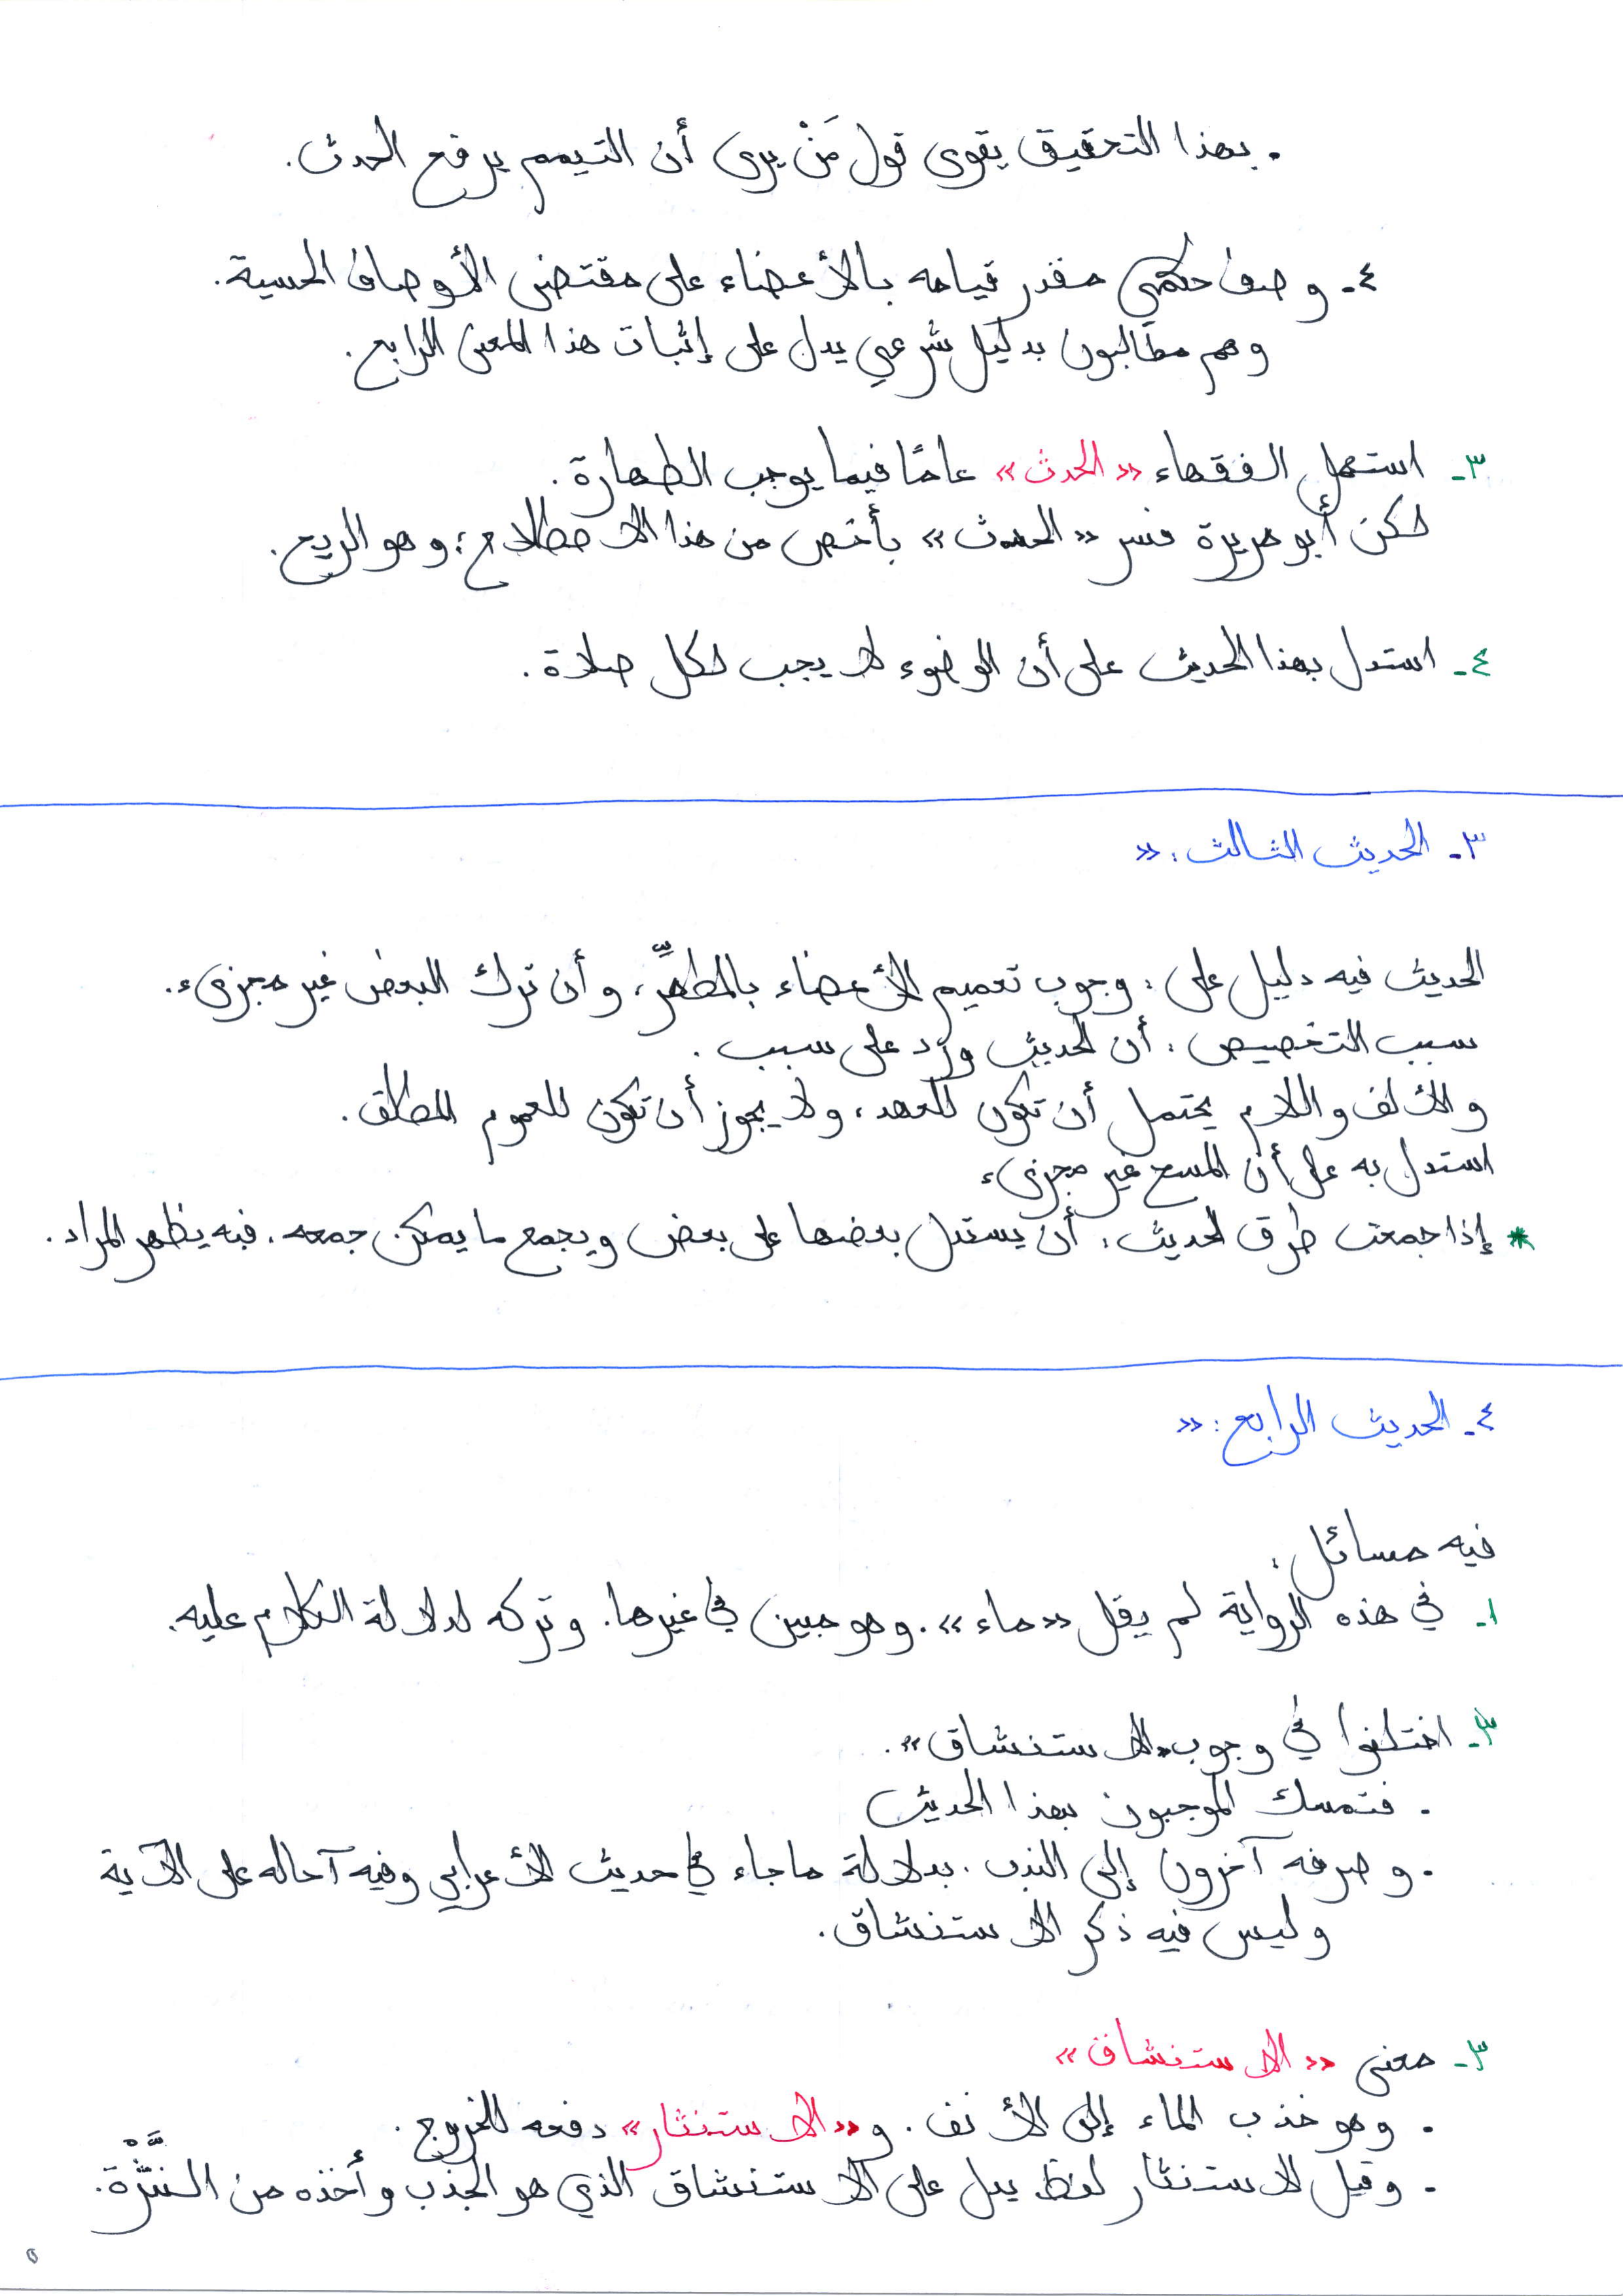 . بهذا التحقيق يقوى قول مَنْ يرى أن التيمم يرفع الحدث.
٤- وصف حكمي مقدر قيامه بالأعضاء على مقتضى الأوصاف الحسية.
وهم مطالبون بدليل شرعي يدل على إثبات هذا المعنى الرابع.
٣- استعمل الفقهاء «الحدث» عامًا فيما يوجب الطهارة.
لكن أبو هريرة فسر «الحدث» بأخص من هذا الاصطلاح؛ وهو الريح.
٤- استدل بهذا الحديث على أن الوضوء لا يجب لكل صلاة.
٣- الحديث الثالث: «
الحديث فيه دليل على: وجوب تعميم الأعضاء بالمطهِّر، وأن ترك البعض غير مجزىء.
سبب التخصيص: أن الحديث ورد على سبب.
والألف واللام يحتمل أن تكون للعهد، ولا يجوز أن تكون للعموم المطلق.
استدل به على أن المسح غير مجزىء
* إذا جمعت طرق الحديث: أن يستدل بعضها على بعض ويجمع ما يمكن جمعه. فبه يظهر المراد.
٤- الحديث الرابع: «
فيه مسائل:
١- في هذه الرواية لم يقل «ماء». وهو مبين في غيرها. وتركه لدلالة الكلام عليه.
٢- اختلفوا في وجوب «الاستنشاق».
. فتمسك الموجبون بهذا الحديث
. وصرفه آخرون إلى الندب. بدلالة ما جاء في حديث الأعرابي وفيه آحاله على الآية
وليس فيه ذكر الاستنشاق.
٣- معنى «الاستنشاق»
. وهو جذب الماء إلى الأنف. و«الاستنثار» دفعه للخروج.
. وقيل الاستنثار لفظ يدل على الاستنشاق الذي هو الجذب وأخذه من النَّثْرَة.
٥